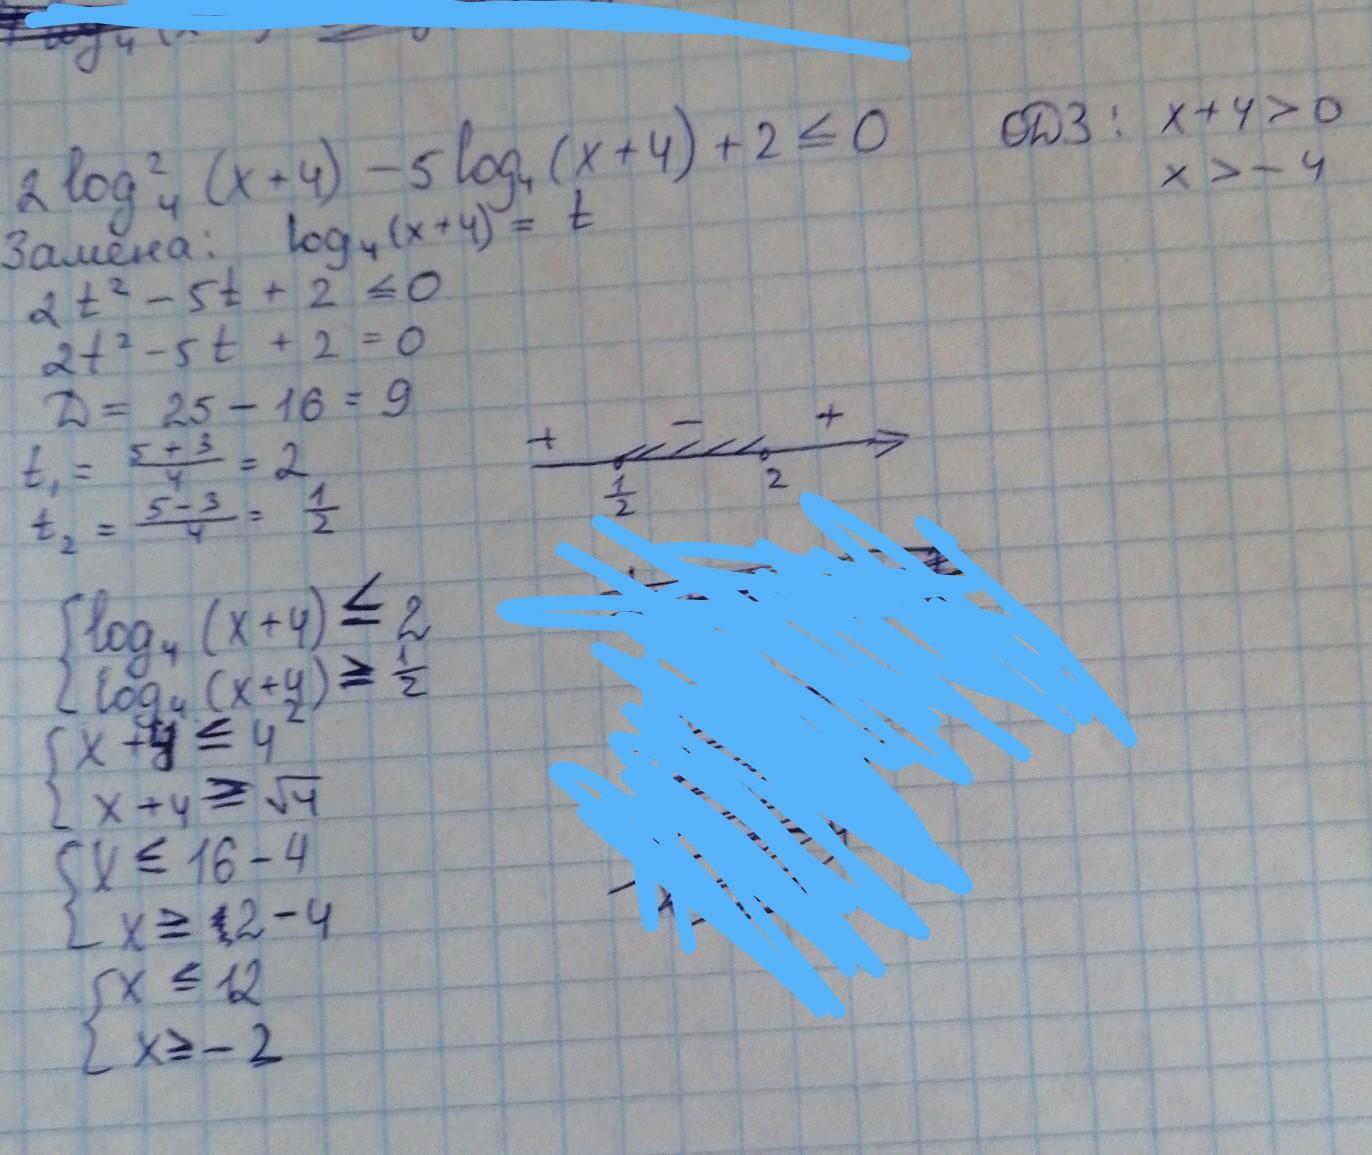 2 log²₄ (x+4) - 5 log₄ (x+4) + 2 ≤ 0
ОДЗ: x+4>0
x>-4
Замена: log₄(x+4) = t
2t² - 5t + 2 ≤ 0
2t² - 5t + 2 = 0
D = 25 - 16 = 9
t₁ = (5+3)/4 = 2
t₂ = (5-3)/4 = 1/2
+ - +
1/2 2
{ log₄ (x+4) ≤ 2
log₄ (x+4) ≥ 1/2
{ x+4 ≤ 4²
x+4 ≥ √4
{ x ≤ 16-4
x ≥ 2-4
{ x ≤ 12
x ≥ -2